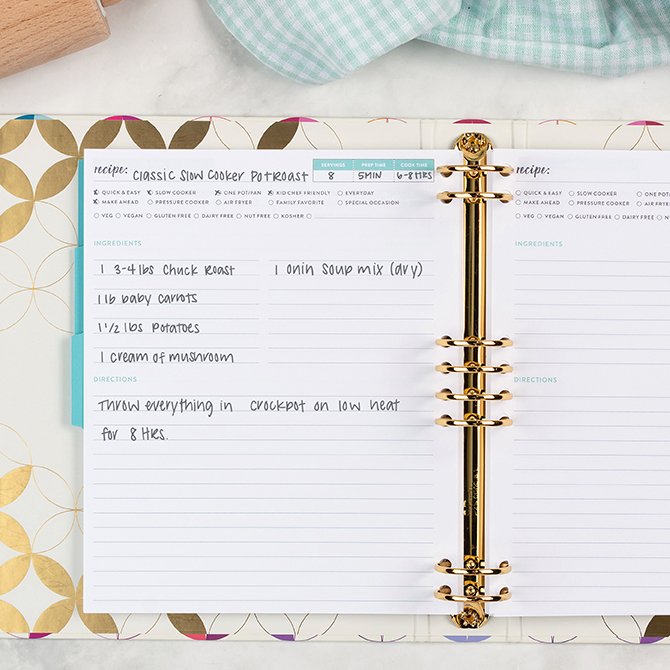 recipe: Classic Slow Cooker Potroast
SERVINGS PREP TIME COOK TIME
8 5MIN 6-8 HRS
QUICK & EASY SLOW COOKER ONE POT/PAN KID CHEF FRIENDLY EVERYDAY
MAKE AHEAD PRESSURE COOKER AIR FRYER FAMILY FAVORITE SPECIAL OCCASION
VEG VEGAN GLUTEN FREE DAIRY FREE NUT FREE KOSHER
INGREDIENTS
1 3-4 lbs Chuck Roast 1 onin Soup mix (dry)
1 lb baby carrots
1 1/2 lbs Potatoes
1 cream of mushroom
DIRECTIONS
Throw everything in crockpot on low heat
for 8 Hrs.
recipe:
QUICK & EASY SLOW COOKER ONE POT/PAN
MAKE AHEAD PRESSURE COOKER AIR FRYER
VEG VEGAN GLUTEN FREE DAIRY FREE
INGREDIENTS
DIRECTIONS